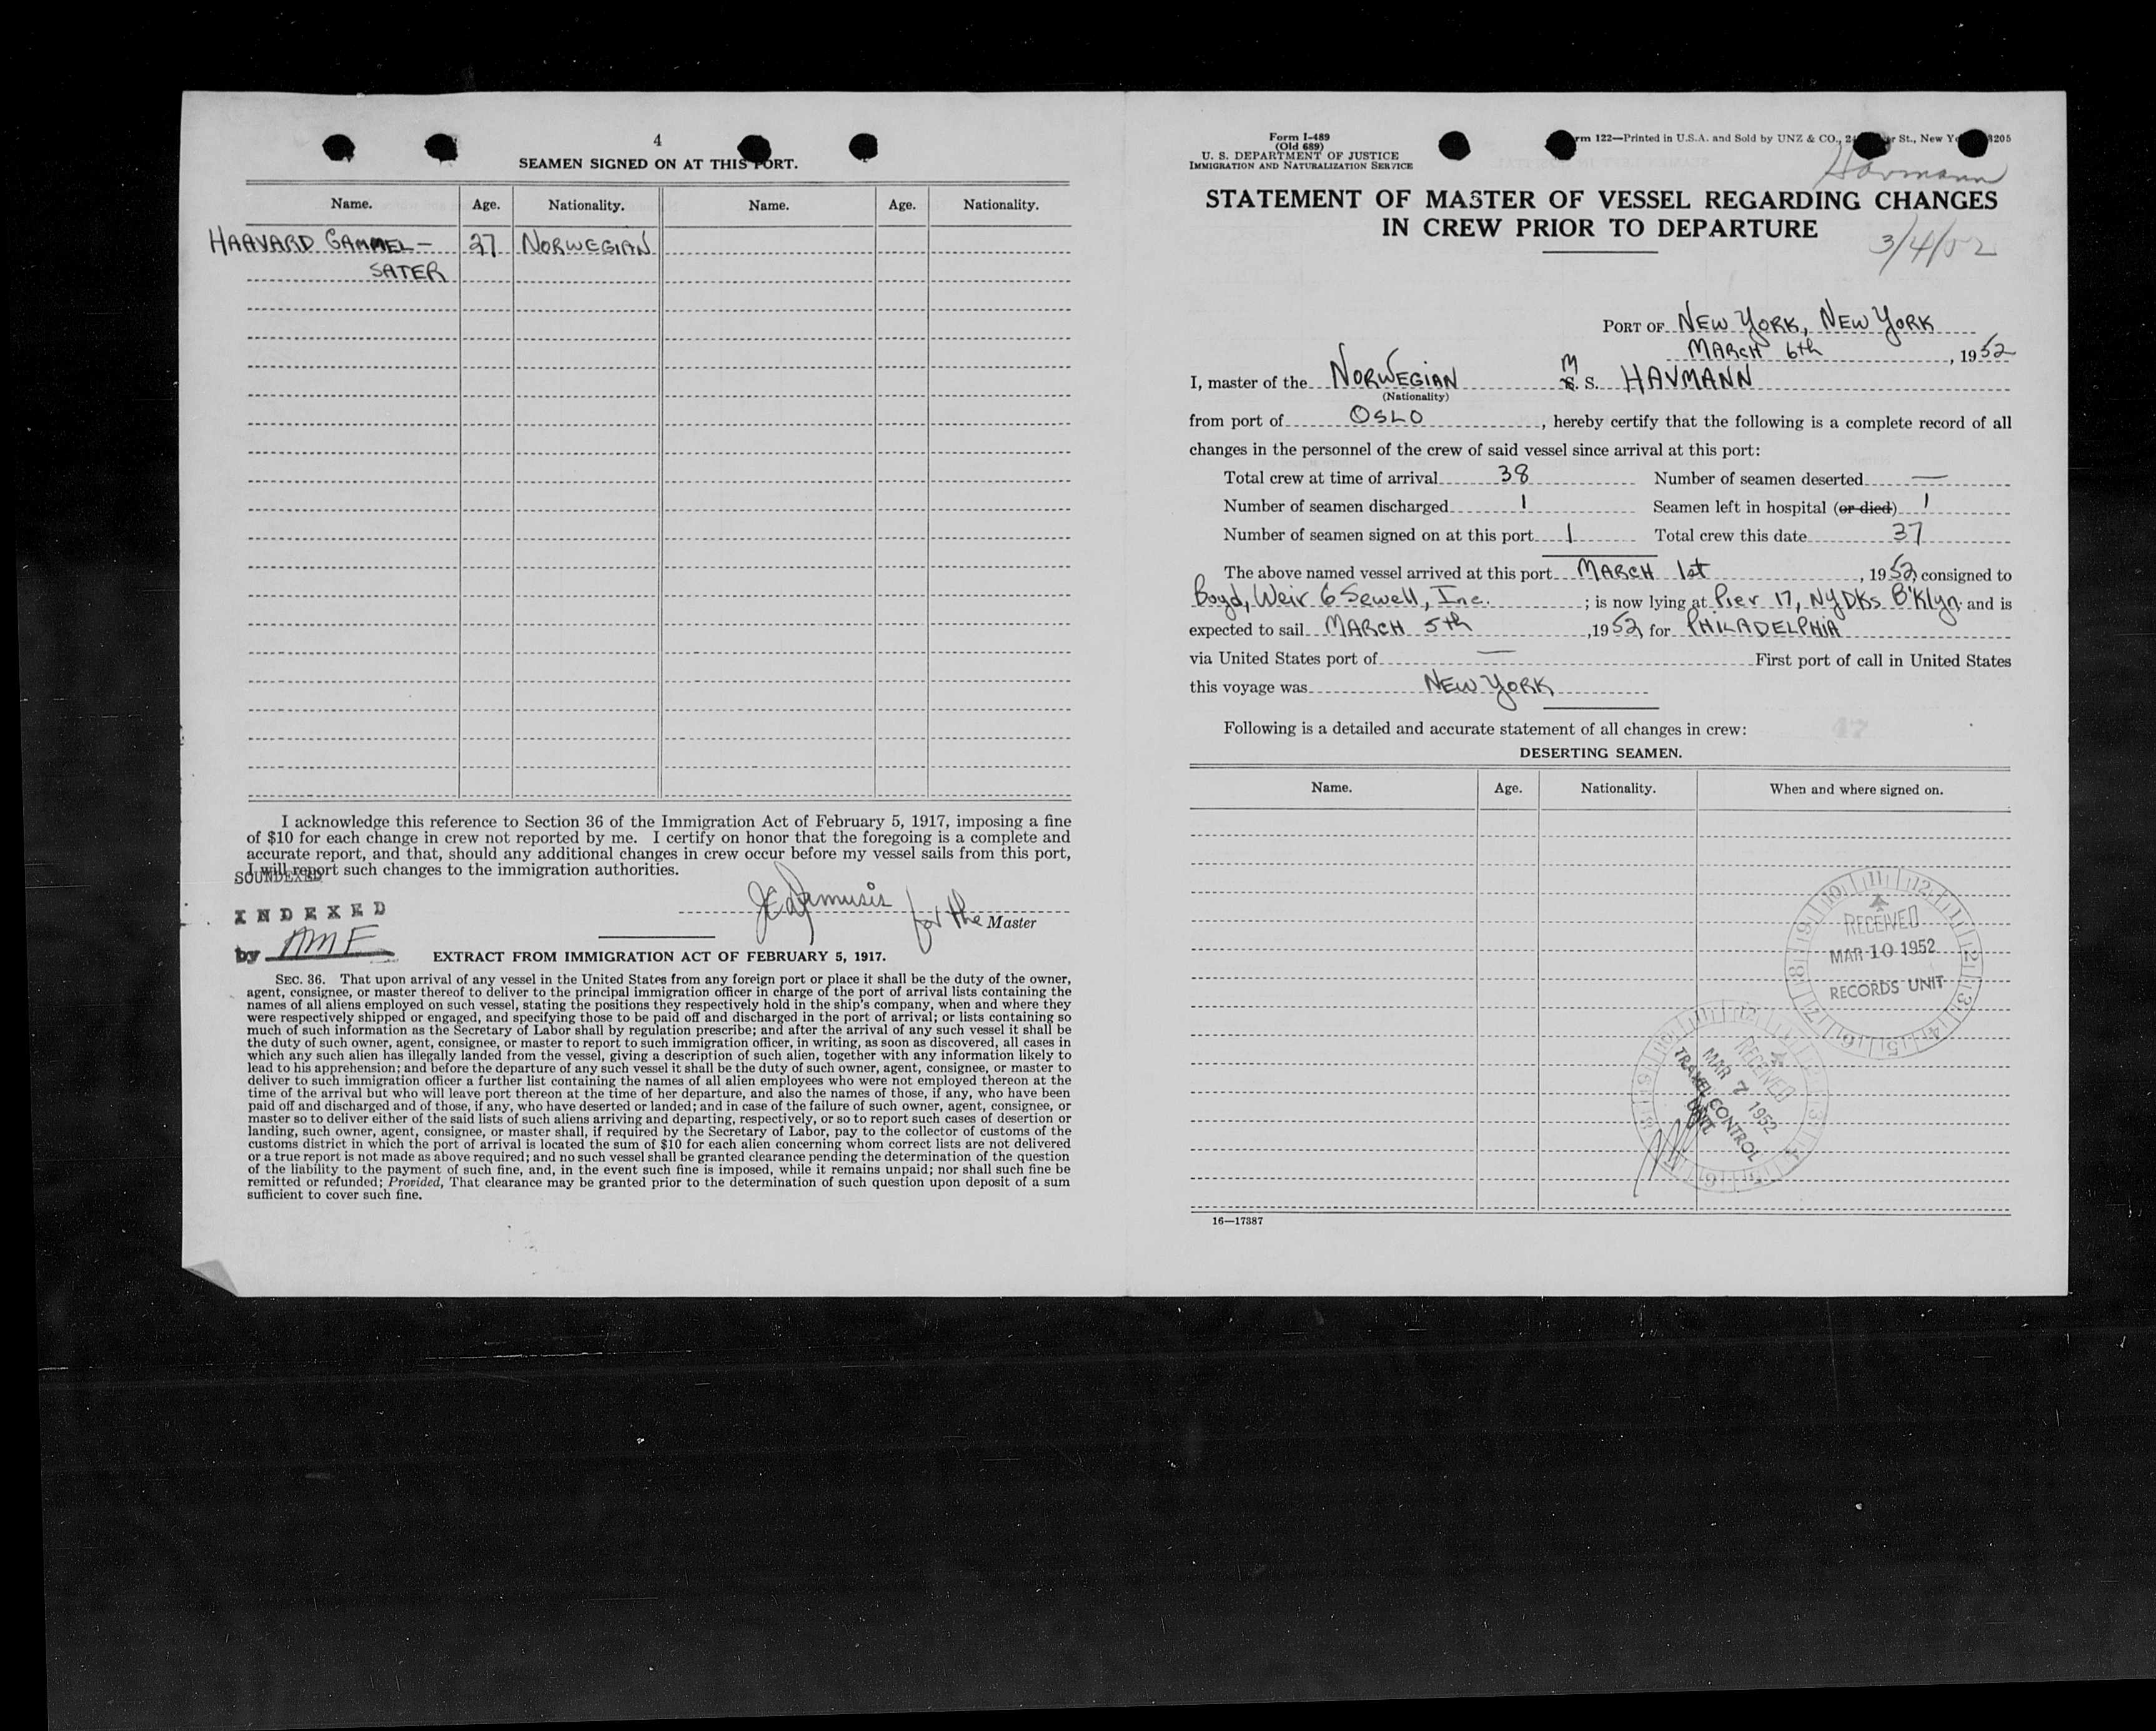 4
SEAMEN SIGNED ON AT THIS PORT.
Name. Age. Nationality. Name. Age. Nationality.
HAAVARD GAMMEL- 27 NORWEGIAN
SATER
I acknowledge this reference to Section 36 of the Immigration Act of February 5, 1917, imposing a fine
of $10 for each change in crew not reported by me. I certify on honor that the foregoing is a complete and
accurate report, and that, should any additional changes in crew occur before my vessel sails from this port,
I will report such changes to the immigration authorities.
SOUNDEXED
INDEXED
for the Master
by AMF
EXTRACT FROM IMMIGRATION ACT OF FEBRUARY 5, 1917.
SEC. 36. That upon arrival of any vessel in the United States from any foreign port or place it shall be the duty of the owner,
agent, consignee, or master thereof to deliver to the principal immigration officer in charge of the port of arrival lists containing the
names of all aliens employed on such vessel, stating the positions they respectively hold in the ship's company, when and where they
were respectively shipped or engaged, and specifying those to be paid off and discharged in the port of arrival; or lists containing so
much of such information as the Secretary of Labor shall by regulation prescribe; and after the arrival of any such vessel it shall be
the duty of such owner, agent, consignee, or master to report to such immigration officer, in writing, as soon as discovered, all cases in
which any such alien has illegally landed from the vessel, giving a description of such alien, together with any information likely to
lead to his apprehension; and before the departure of any such vessel it shall be the duty of such owner, agent, consignee, or master to
deliver to such immigration officer a further list containing the names of all alien employees who were not employed thereon at the
time of the arrival but who will leave port thereon at the time of her departure, and also the names of those, if any, who have been
paid off and discharged and of those, if any, who have deserted or landed; and in case of the failure of such owner, agent, consignee, or
master so to deliver either of the said lists of such aliens arriving and departing, respectively, or so to report such cases of desertion or
landing, such owner, agent, consignee, or master shall, if required by the Secretary of Labor, pay to the collector of customs of the
customs district in which the port of arrival is located the sum of $10 for each alien concerning whom correct lists are not delivered
or a true report is not made as above required; and no such vessel shall be granted clearance pending the determination of the question
of the liability to the payment of such fine, and, in the event such fine is imposed, while it remains unpaid; nor shall such fine be
remitted or refunded; Provided, That clearance may be granted prior to the determination of such question upon deposit of a sum
sufficient to cover such fine.
Form I-489
(Old 689)
U. S. DEPARTMENT OF JUSTICE
IMMIGRATION AND NATURALIZATION SERVICE
rm 122—Printed in U.S.A. and Sold by UNZ & CO., St., New
Havmann
STATEMENT OF MASTER OF VESSEL REGARDING CHANGES
IN CREW PRIOR TO DEPARTURE
3/4/52
PORT OF NEW YORK, NEW YORK
MARCH 6th, 1952
I, master of the NORWEGIAN M S. S. HAVMANN
(Nationality)
from port of OSLO, hereby certify that the following is a complete record of all
changes in the personnel of the crew of said vessel since arrival at this port:
Total crew at time of arrival 38 Number of seamen deserted —
Number of seamen discharged 1 Seamen left in hospital (or died) 1
Number of seamen signed on at this port 1 Total crew this date 37
The above named vessel arrived at this port MARCH 1st, 1952, consigned to
Boyd, Weir & Sewell, Inc.; is now lying at Pier 17, NYDKs B'Klyn. and is
expected to sail MARCH 5th, 1952, for PHILADELPHIA
via United States port of — First port of call in United States
this voyage was NEW YORK
Following is a detailed and accurate statement of all changes in crew:
DESERTING SEAMEN.
Name. Age. Nationality. When and where signed on.
RECEIVED
MAR 10 1952
RECORDS UNIT
RECEIVED
MAR 7 1952
TRAVEL CONTROL
UNIT
16—17387